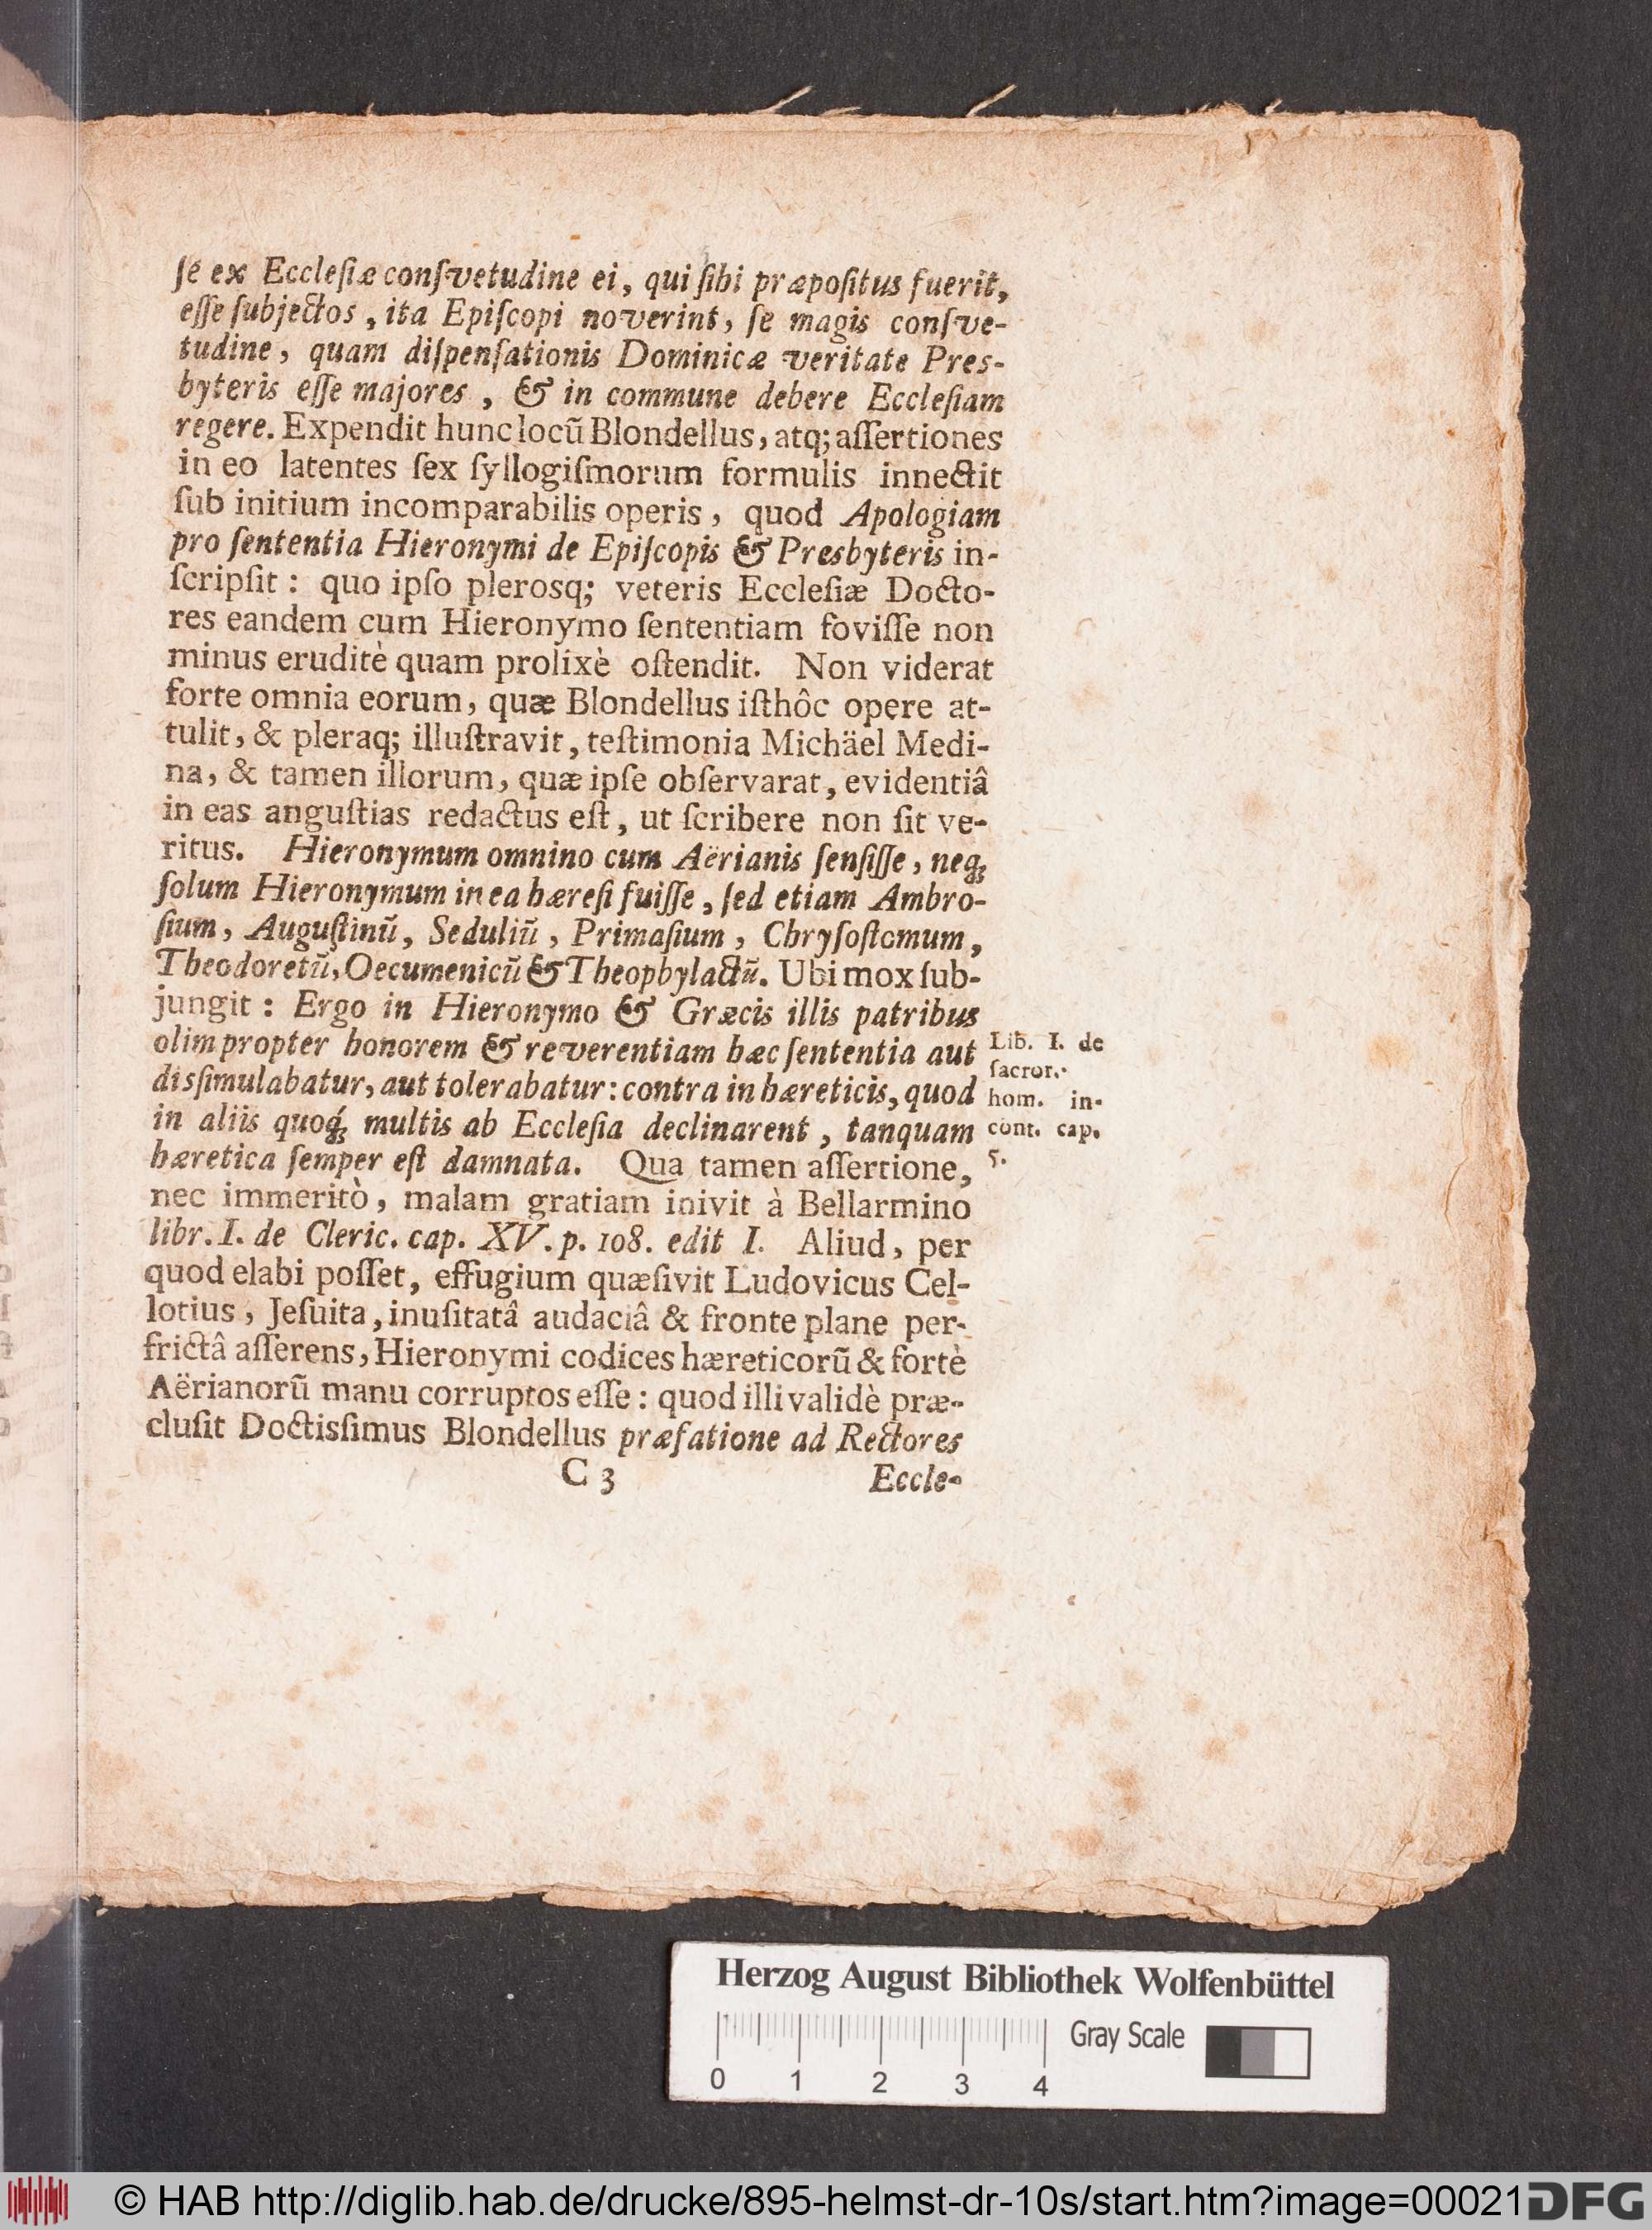 ſé ex Eccleſiæ conſvetudine ei, qui ſibi præpoſitus fuerit,
eſſe ſubjectos, ita Epiſcopi noverint, ſe magis conſve-
tudine, quam diſpenſationis Dominicæ veritate Pres-
byteris eſſe majores, & in commune debere Eccleſiam
regere. Expendit hunc locũ Blondellus, atq; aſſertiones
in eo latentes ſex ſyllogiſmorum formulis innectit
ſub initium incomparabilis operis, quod Apologiam
pro ſententia Hieronymi de Epiſcopis & Presbyteris in-
ſcripſit: quo ipſo plerosq; veteris Eccleſiæ Docto-
res eandem cum Hieronymo ſententiam foviſſe non
minus eruditè quam prolixè oſtendit. Non viderat
forte omnia eorum, quæ Blondellus iſthôc opere at-
tulit, & pleraq; illuſtravit, teſtimonia Michäel Medi-
na, & tamen illorum, quæ ipſe obſervarat, evidentiâ
in eas anguſtias redactus eſt, ut ſcribere non ſit ve-
ritus. Hieronymum omnino cum Aërianis ſenſiſſe, neq;
ſolum Hieronymum in ea hæreſi fuiſſe, ſed etiam Ambro-
ſium, Auguſtinũ, Seduliũ, Primaſium, Chryſoſtomum,
Theodoretũ, Oecumenicũ & Theophylactũ. Ubi mox ſub-
jungit: Ergo in Hieronymo & Græcis illis patribus
olim propter honorem & reverentiam hæc ſententia aut
disſimulabatur, aut tolerabatur: contra in hæreticis, quod
in aliis quoq́; multis ab Eccleſia declinarent, tanquam
hæretica ſemper eſt damnata. Qua tamen aſſertione,
Lib. I. de
ſacror.
hom. in-
cont. cap.
5.
nec immeritò, malam gratiam inivit à Bellarmino
libr. I. de Cleric. cap. XV. p. 108. edit I. Aliud, per
quod elabi poſſet, effugium quæſivit Ludovicus Cel-
lotius, Jeſuita, inuſitatâ audaciâ & fronte plane per-
frictâ aſſerens, Hieronymi codices hæreticorũ & fortè
Aërianorũ manu corruptos eſſe: quod illi validè præ-
cluſit Doctisſimus Blondellus præfatione ad Rectores
C 3
Eccle-
Herzog August Bibliothek Wolfenbüttel
Gray Scale
0 1 2 3 4
© HAB http://diglib.hab.de/drucke/895-helmst-dr-10s/start.htm?image=00021
DFG